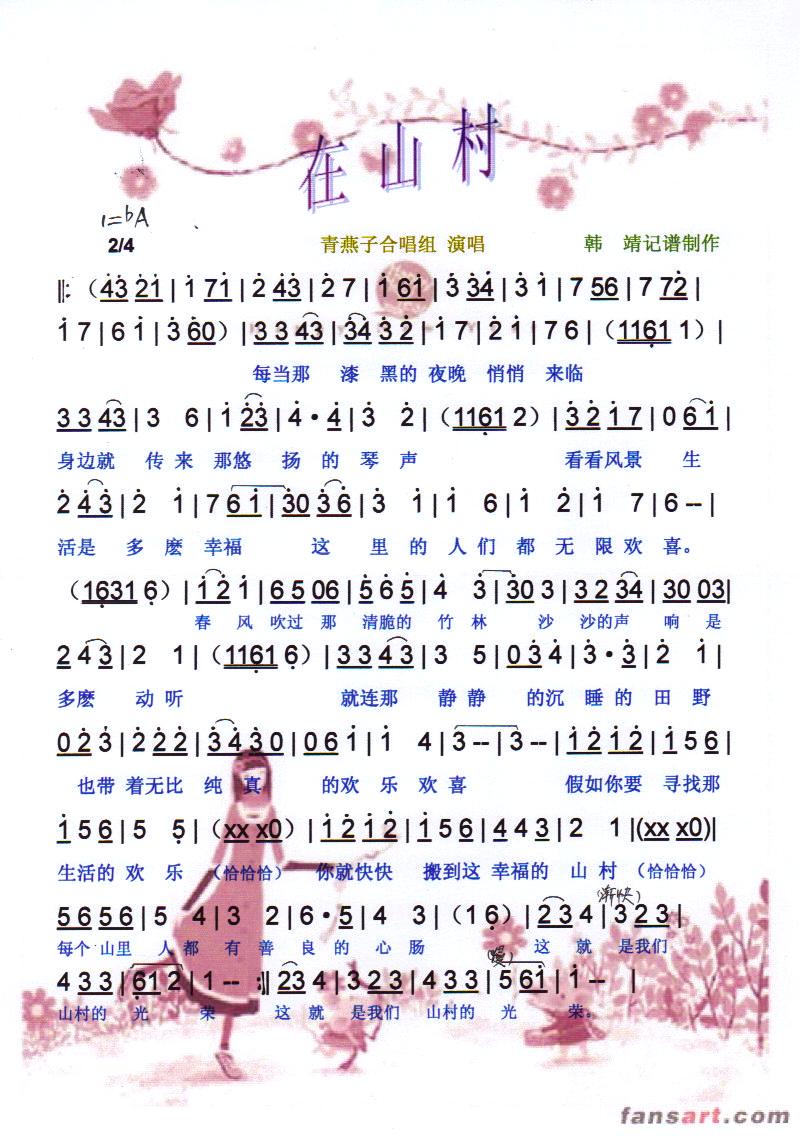 在山村
1=bA
2/4 青燕子合唱组 演唱 韩 靖记谱制作
‖:（43 21 | 1 71 | 2 43 | 2 7 | 1 61 | 3 34 | 3 1 | 7 56 | 7 72 |
1 7 | 6 1 | 3 60）| 3 3 43 | 34 3 2 | 1 7 | 2 1 | 7 6 |（1161 1）|
每当那 漆 黑的 夜晚 悄悄 来临
3 3 43 | 3 6 | 1 23 | 4·4 | 3 2 |（1161 2）| 3 2 1 7 | 0 6 1 |
身边就 传 来 那悠 扬 的 琴 声 看看风景 生
2 4 3 | 2 1 | 7 6 1 | 30 3 6 | 3 1 | 1 6 | 1 2 | 1 7 | 6 -- |
活是 多 麽 幸福 这 里 的 人 们 都 无 限 欢 喜。
（1631 6）| 1 2 1 | 6 5 06 | 5 6 5 | 4 3 | 30 3 | 3 2 34 | 30 03 |
春 风 吹过 那 清脆的 竹 林 沙 沙的声 响 是
2 4 3 | 2 1 |（1161 6）| 3 3 4 3 | 3 5 | 0 3 4 | 3·3 | 2 1 |
多麽 动 听 就连那 静 静 的沉 睡 的 田 野
0 2 3 | 2 2 2 | 3 4 3 0 | 0 6 1 | 1 4 | 3 -- | 3 -- | 1 2 1 2 | 1 5 6 |
也带 着无比 纯 真 的欢 乐 欢 喜 假如你要 寻找那
1 5 6 | 5 5 |（xx x0）| 1 2 1 2 | 1 5 6 | 4 4 3 | 2 1 |(xx x0)|
生活的 欢 乐 （恰恰恰） 你就快快 搬到这 幸福的 山 村 （恰恰恰）
（渐快）
5 6 5 6 | 5 4 | 3 2 | 6·5 | 4 3 |（1 6）| 2 3 4 | 3 2 3 |
每个 山里 人 都 有 善 良 的 心 肠 这 就 是我们
（慢）
4 3 3 | 61 2 | 1 -- :‖ 23 4 | 3 2 3 | 4 3 3 | 5 61 | 1 -- |
山村的 光 荣 这 就 是我们 山村的 光 荣。
fansart.com